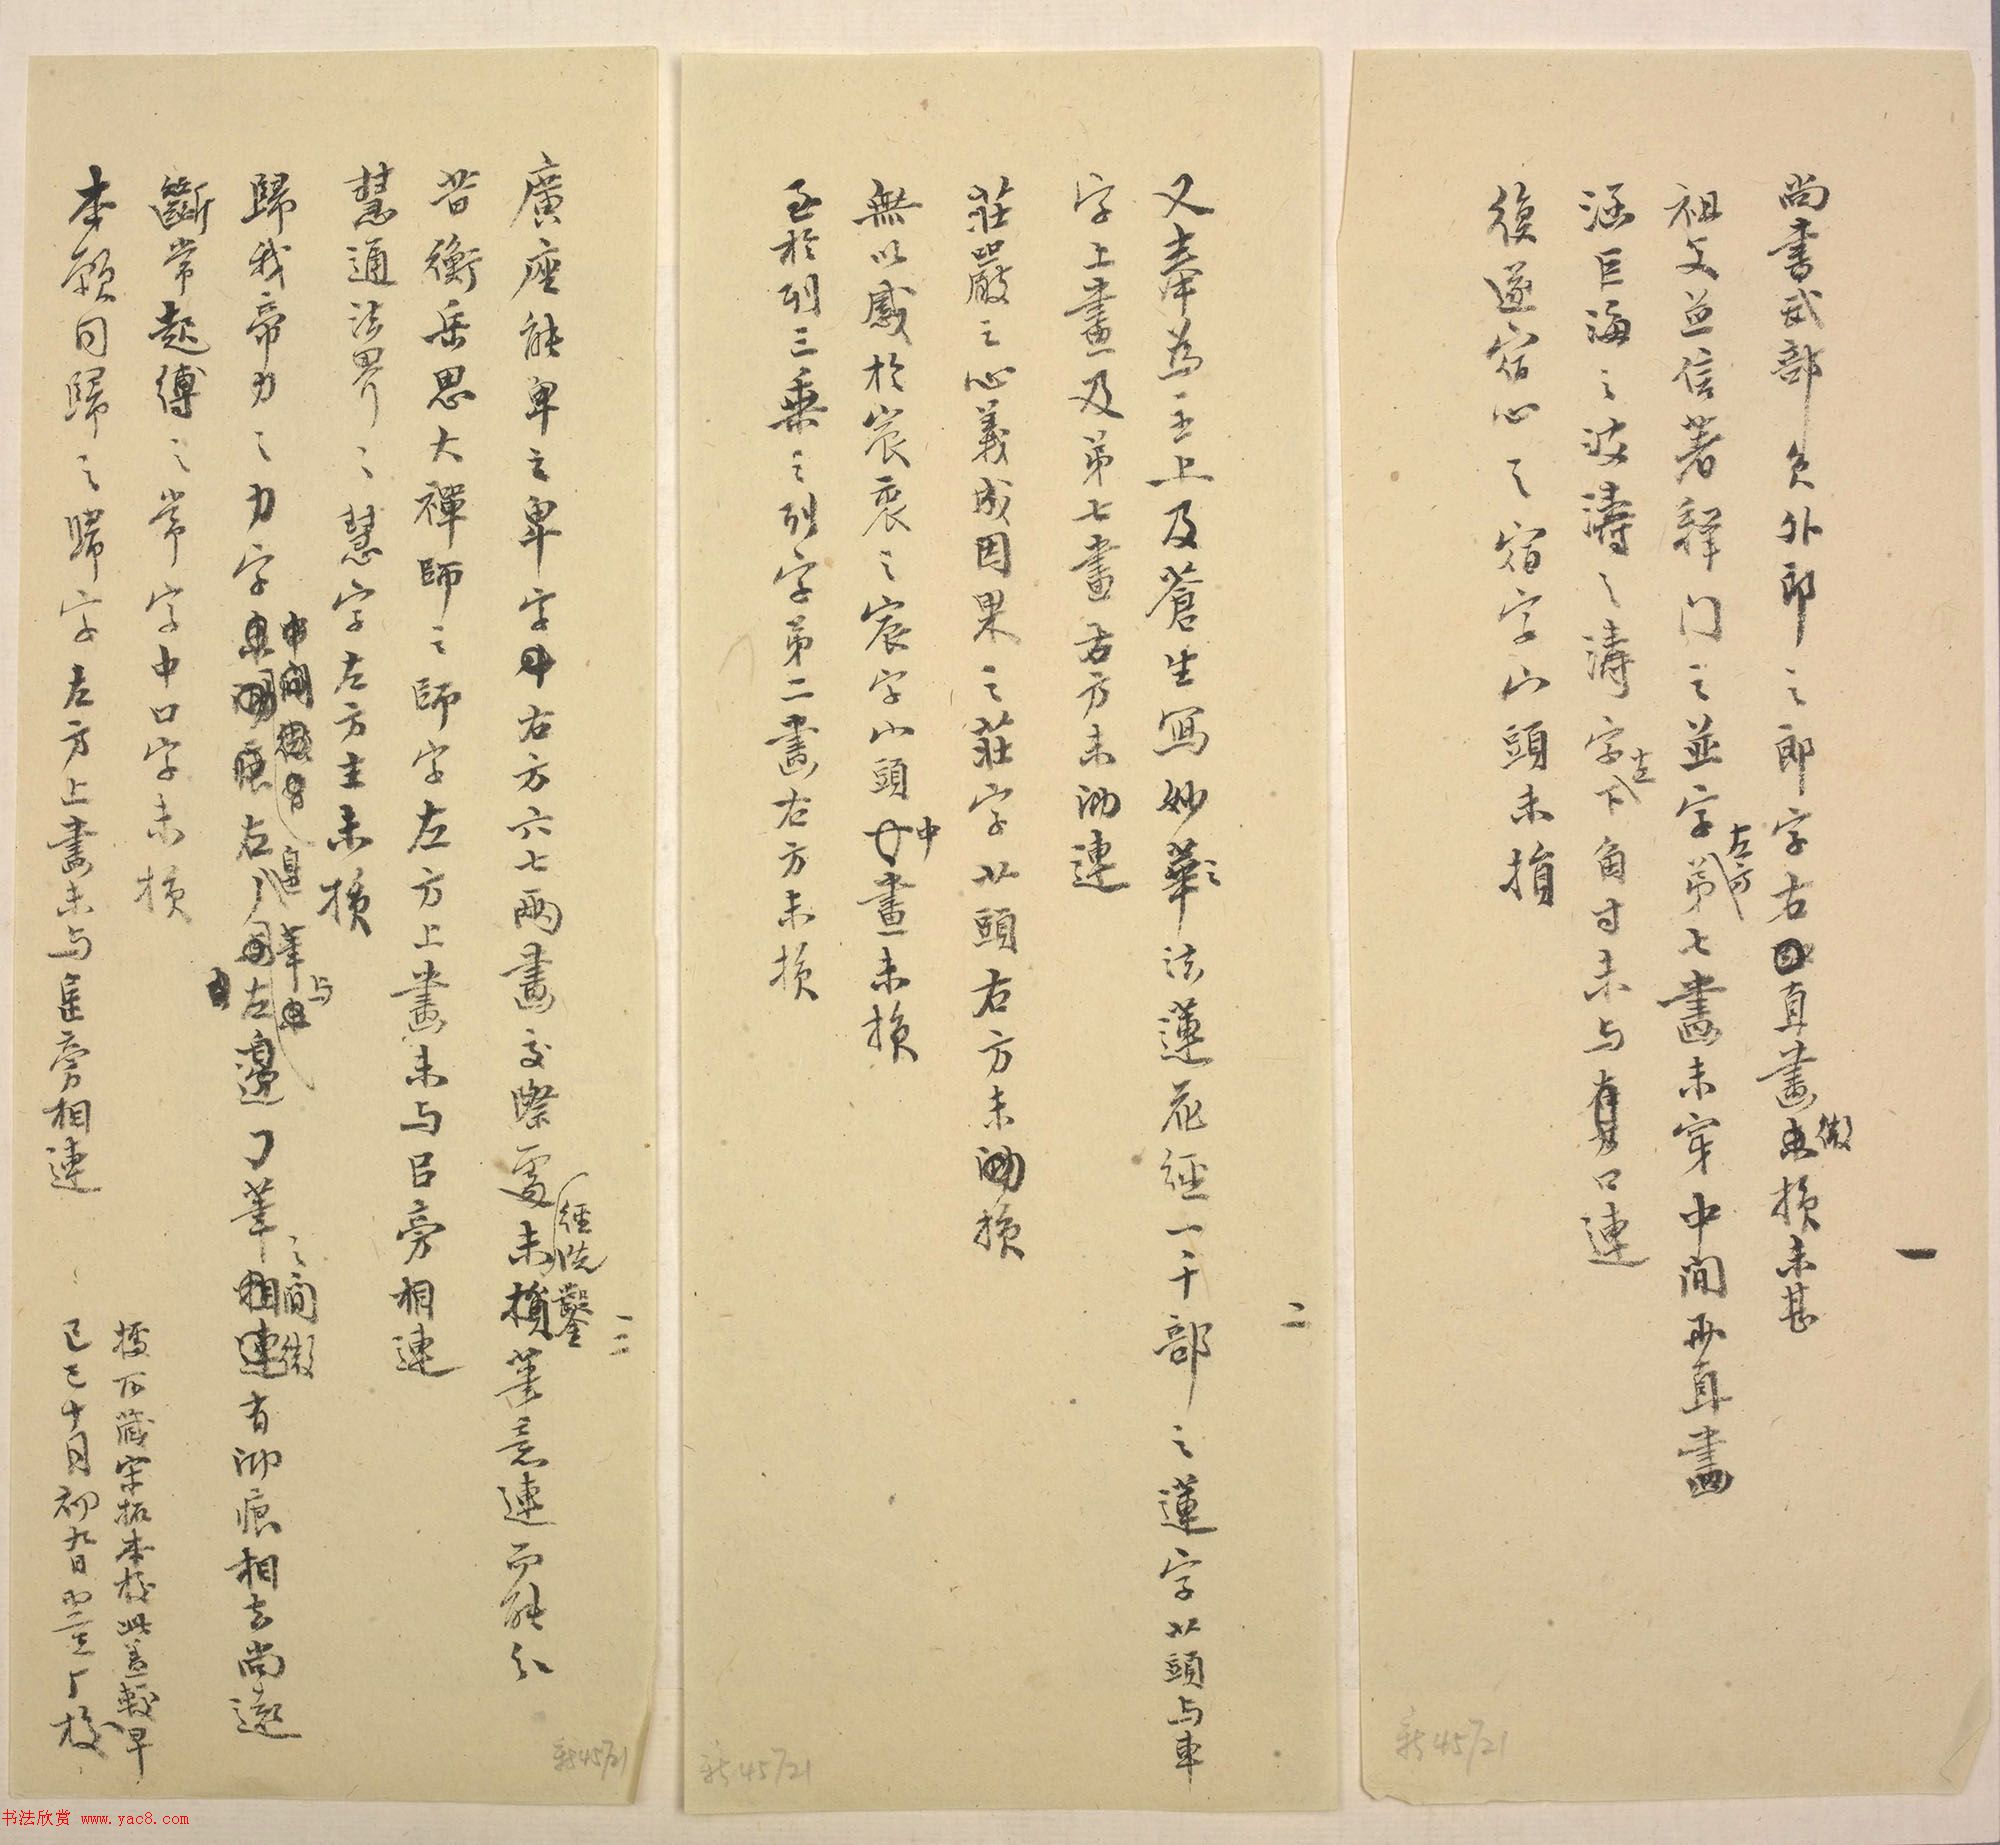 一
尚書武部員外郎之郎字右直畫微損未甚
祖父並信著釋门之並字左方第七畫未穿中間兩直畫
涵巨海之波濤之濤字左下角寸未与口連
後遂宿心之宿字宀頭未損
二
又奉為主上及蒼生寫妙華法蓮花經一千部之蓮字艹頭与車
字上畫及第七畫右方未泐連
莊嚴之心義成因果之莊字艹頭右方未泐損
無以感於宸衷之宸字宀頭中畫未損
至於列三乘之列字第二畫右方未損
三
廣座能卑之卑字右方六七兩畫交際處未經洗鑿筆意連而能分
昔衡岳思大禪師之師字左方上畫未与㠯旁相連
慧通法界之慧字左方主未損
歸我帝力之力字右丿与左邊㇆筆之間微有泐痕相去尚遠
斷常起縛之常字中口字未損
本願同歸之歸字左方上畫未与㠯旁相連
據所藏宋拓本校此蓋較早
己巳十月初九日翌厂校
新45721
新45721
新45721
书法欣赏 www.yac8.com